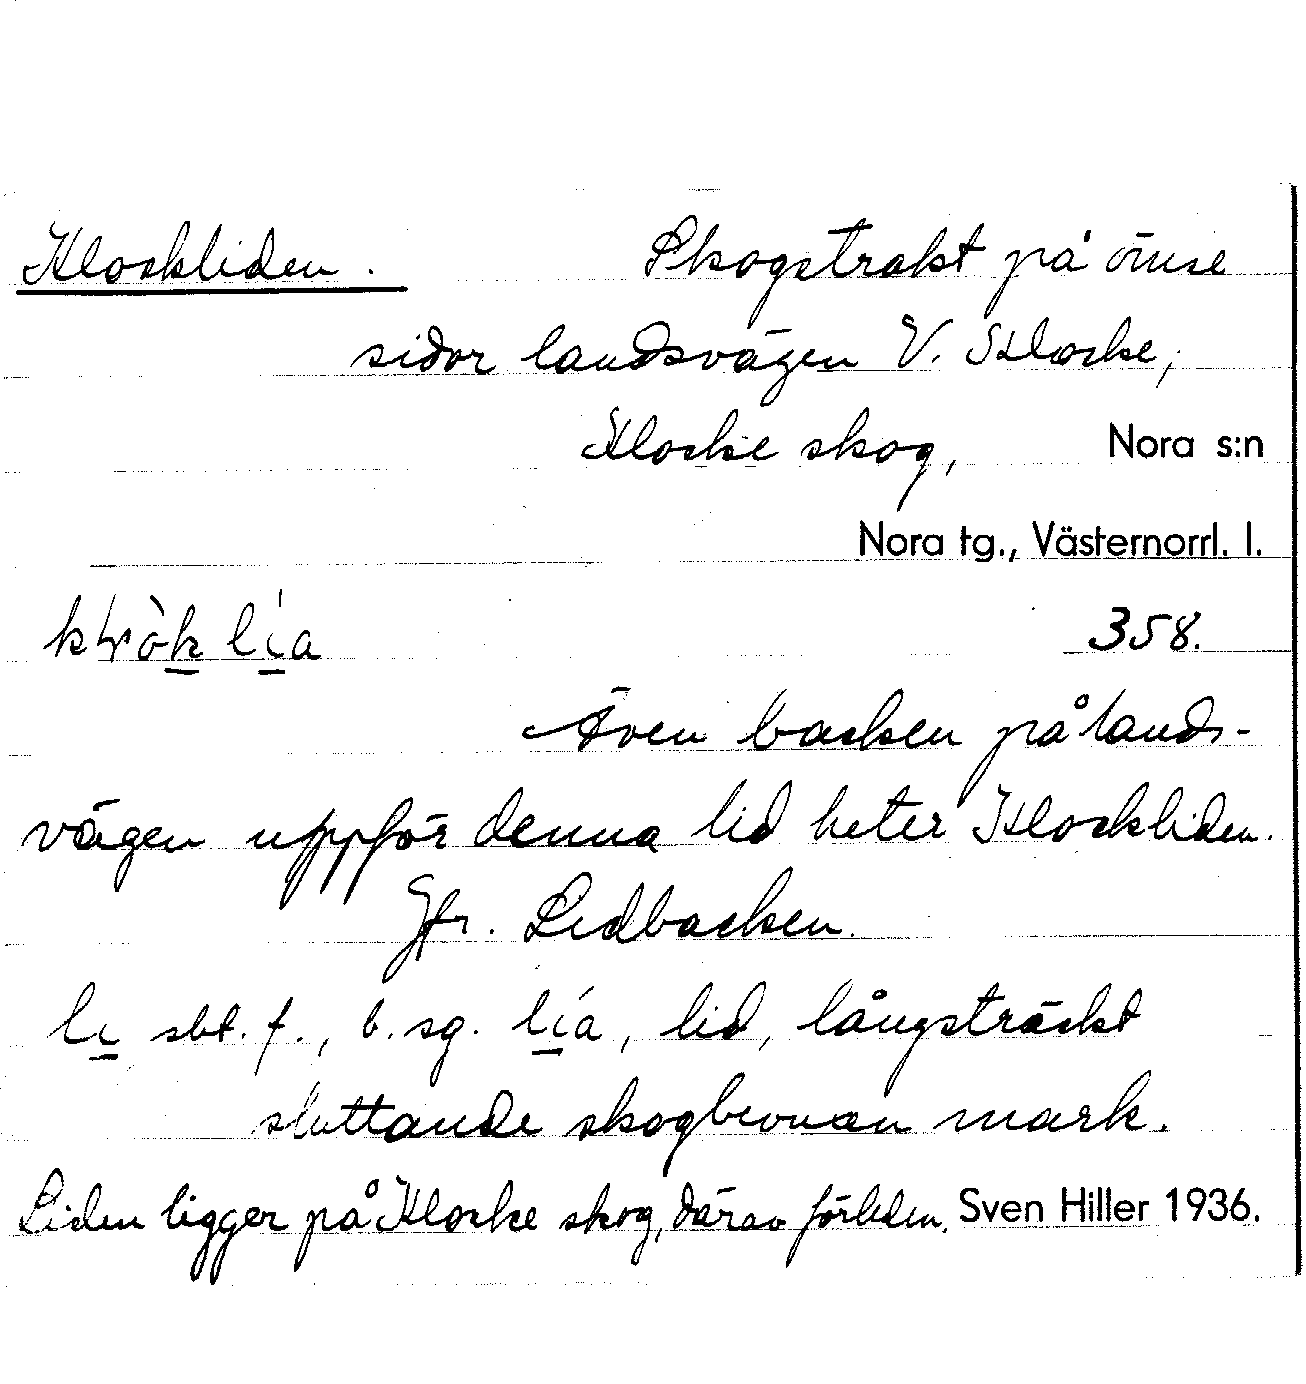 Klockliden. Skogstrakt på ömse
sidor landsvägen V. Klocke,
Klocke skog, Nora s:n
Nora tg., Västernorrl. l.
358.
Även backen på lands-
vägen uppför denna lid heter Klockliden.
Jfr. Lidbacken.
li sbt. f., b. sg. lía, lid, långsträckt
sluttande skogbevuxen mark.
Liden ligger på Klocke skog, därav förleden. Sven Hiller 1936.